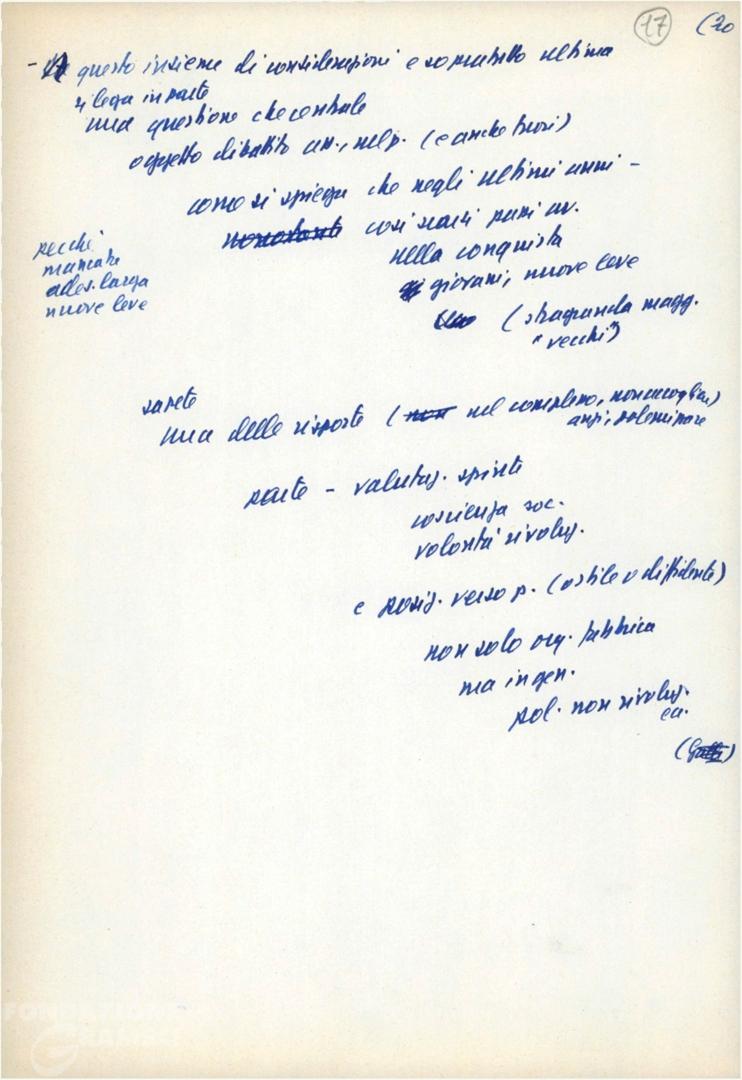 17 (20
- questo insieme di considerazioni e sopratutto ultima
si lega in parte
una questione che centrale
oggetto dibattito un., nel p. (e anche fuori)
come si spiega che negli ultimi anni -
nonostante così scarsi passi av.
nella conquista
giovani, nuove leve
(stragrande magg.
"vecchi")
perché
mancata
ades. larga
nuove leve
sapete
una delle risposte (non nel complesso, non accoglibile)
anzi, polemizzare
parte - valutaz. spinte
coscienza soc.
volontà rivoluz.
e posiz. verso p. (ostile o diffidente)
non solo org. fabbrica
ma in gen.
pol. non rivoluz.
ecc.
FONDAZIONE
GRAMSCI